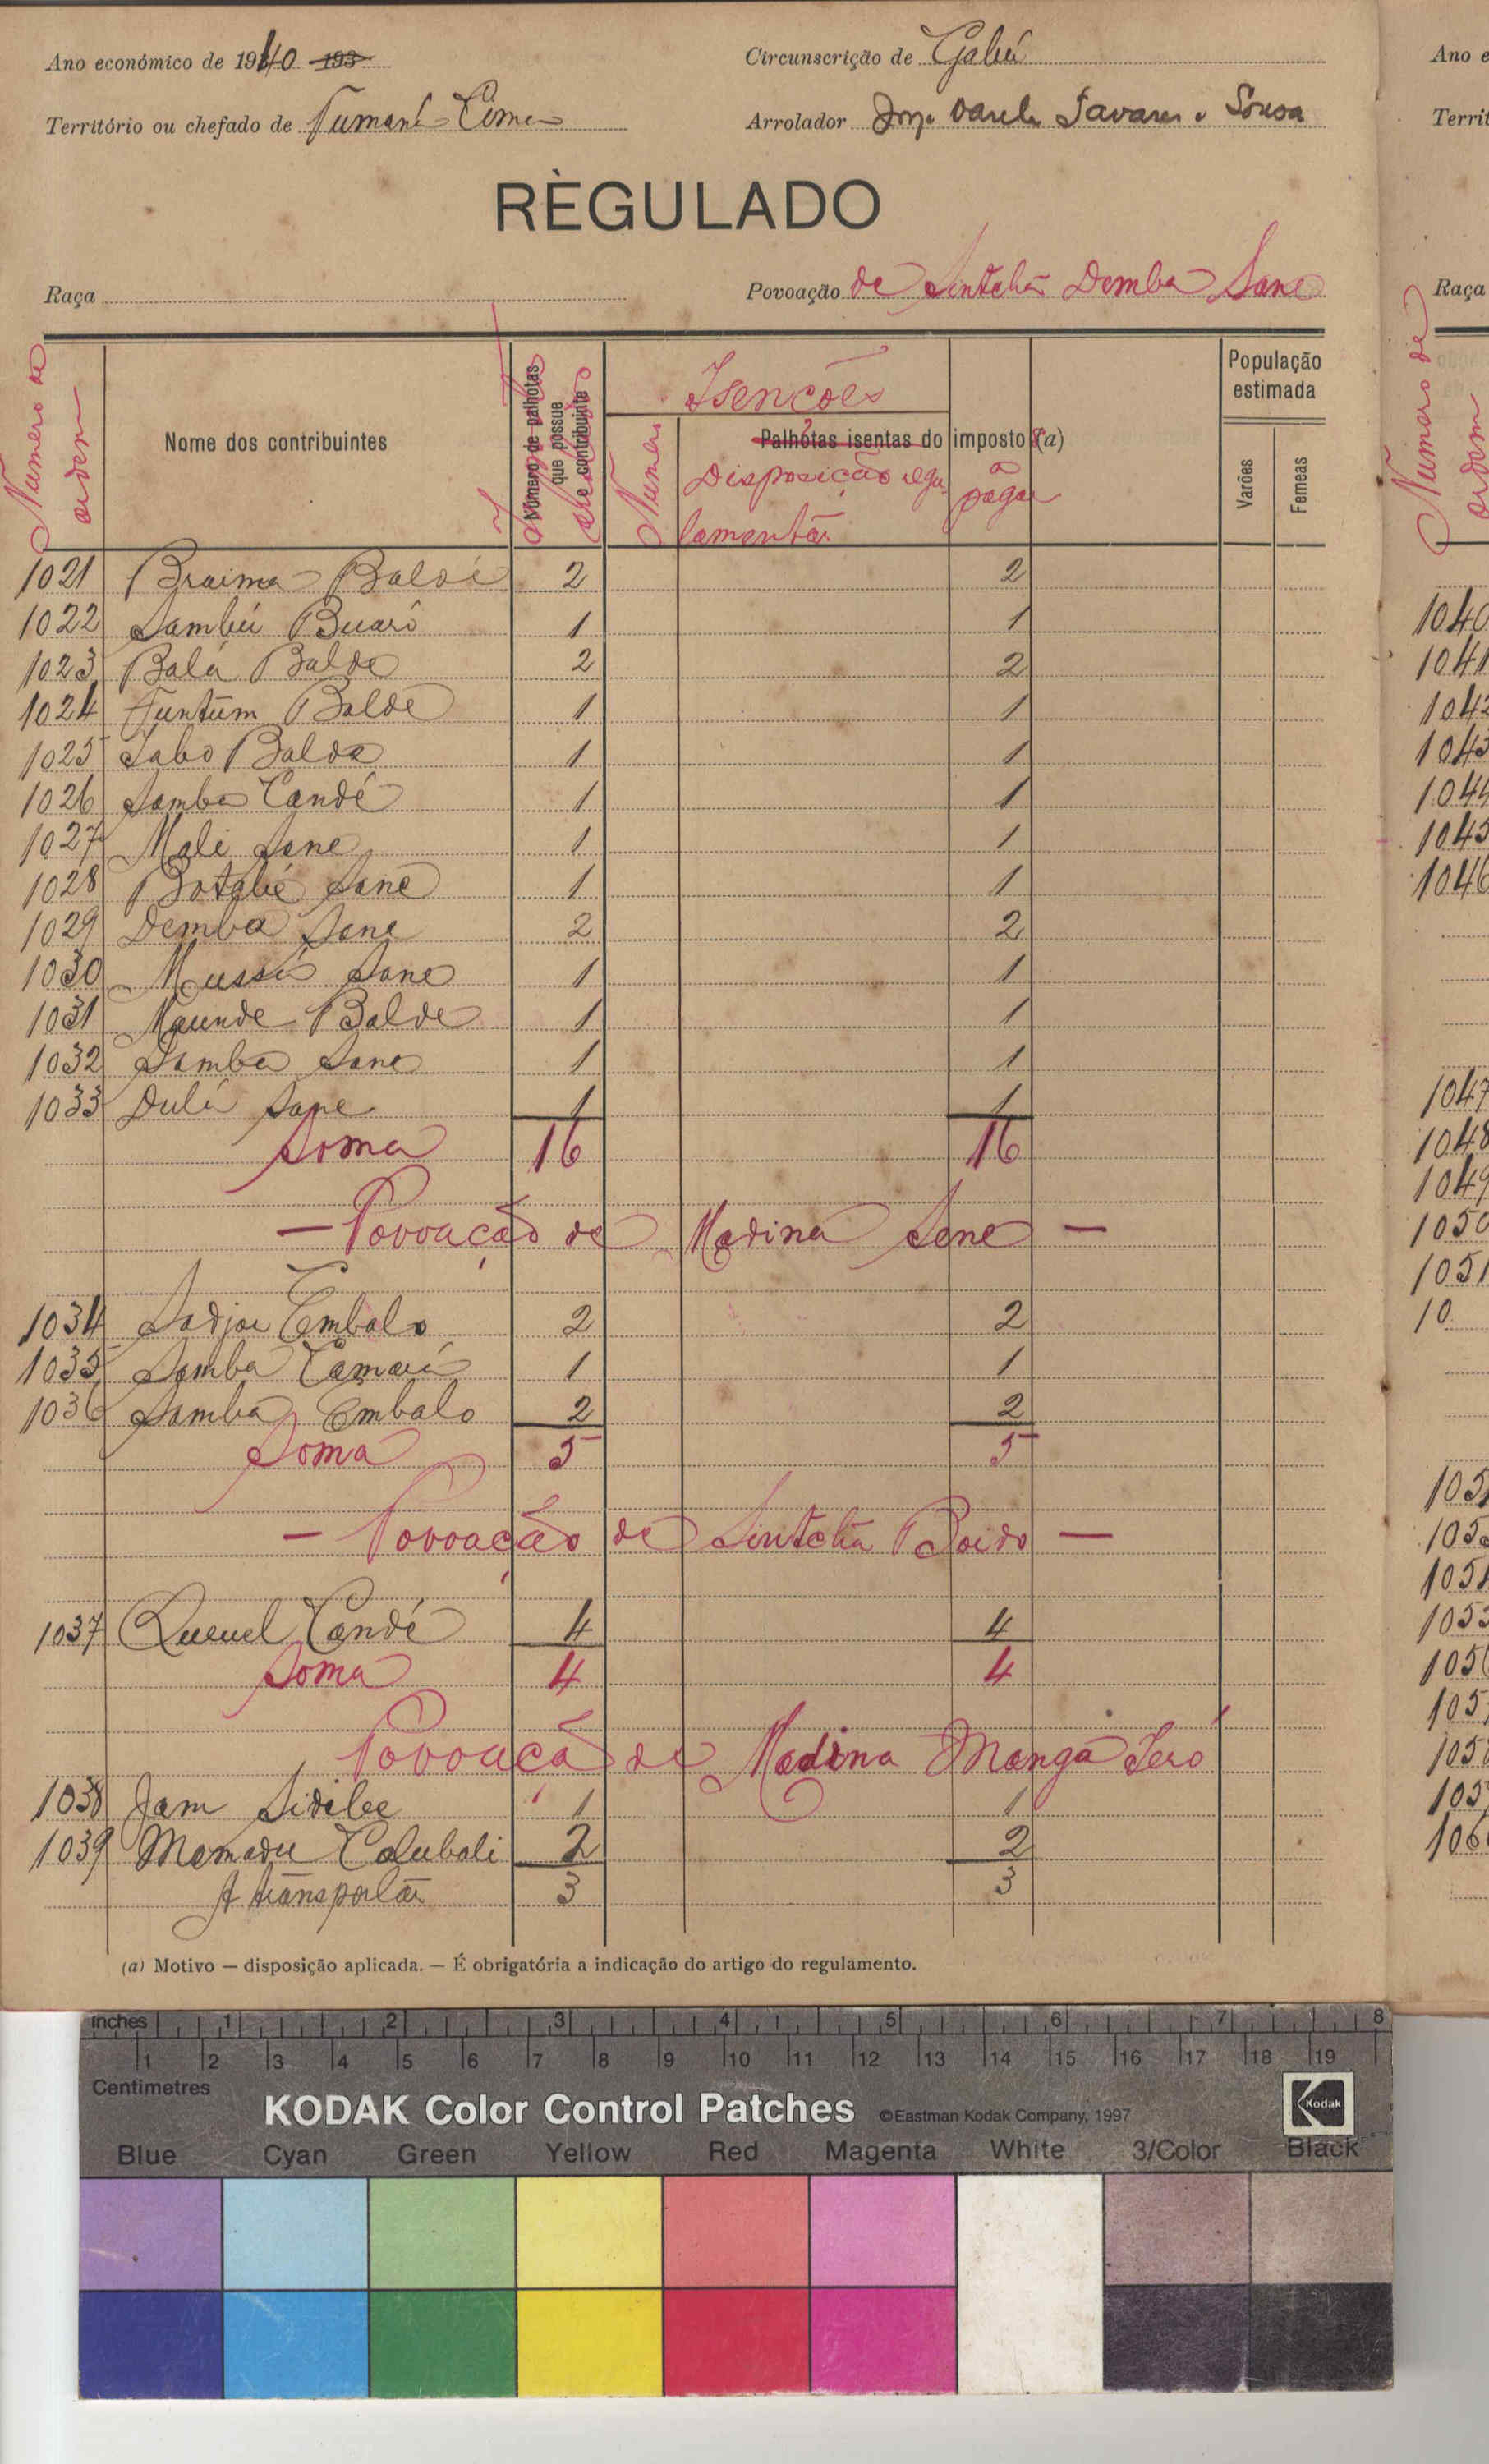 Ano económico de 1940 193
Circunscrição de Gabú
Território ou chefado de Tumaná Cima
Arrolador Tavares e Sousa
RÈGULADO
Raça
Povoação de Sintchã Demba Sane
Numero de ordem
Nome dos contribuintes
Número de palhotas que possue o contribuinte
Isenções
Palhotas isentas do imposto (a)
Numero
Disposição regulamentar
a pagar
População estimada
Varões
Femeas
1021 Braima Baldé 2 2
1022 Sambú Buaró 1 1
1023 Balá Balde 2 2
1024 Funtum Balde 1 1
1025 Sabo Balde 1 1
1026 Samba Candé 1 1
1027 Mali Sane 1 1
1028 Sane 1 1
1029 Demba Sane 2 2
1030 Mussá Sane 1 1
1031 Maunde Balde 1 1
1032 Samba Sane 1 1
1033 Dulá Sane 1 1
Soma 16 16
— Povoação de Madina Sane —
1034 Sadjo Embalo 2 2
1035 Samba Camará 1 1
1036 Samba Embalo 2 2
Soma 5 5
— Povoação de Sintchã Boido —
1037 Queuel Candé 4 4
Soma 4 4
Povoaçã de Madina Manga Seró
1038 Jam Sidibe 1 1
1039 Mamadu Calubali 2 2
A transportar 3 3
(a) Motivo — disposição aplicada. — É obrigatória a indicação do artigo do regulamento.
Ano e
Territ
Raça
Numero de ordem
1040
1041
1042
1043
1044
1045
1046
1047
1048
1049
1050
1051
10
inches 1 2 3 4 5 6 7 8
1 2 3 4 5 6 7 8 9 10 11 12 13 14 15 16 17 18 19
Centimetres
KODAK Color Control Patches ©Eastman Kodak Company, 1997 Kodak
Blue Cyan Green Yellow Red Magenta White 3/Color Black